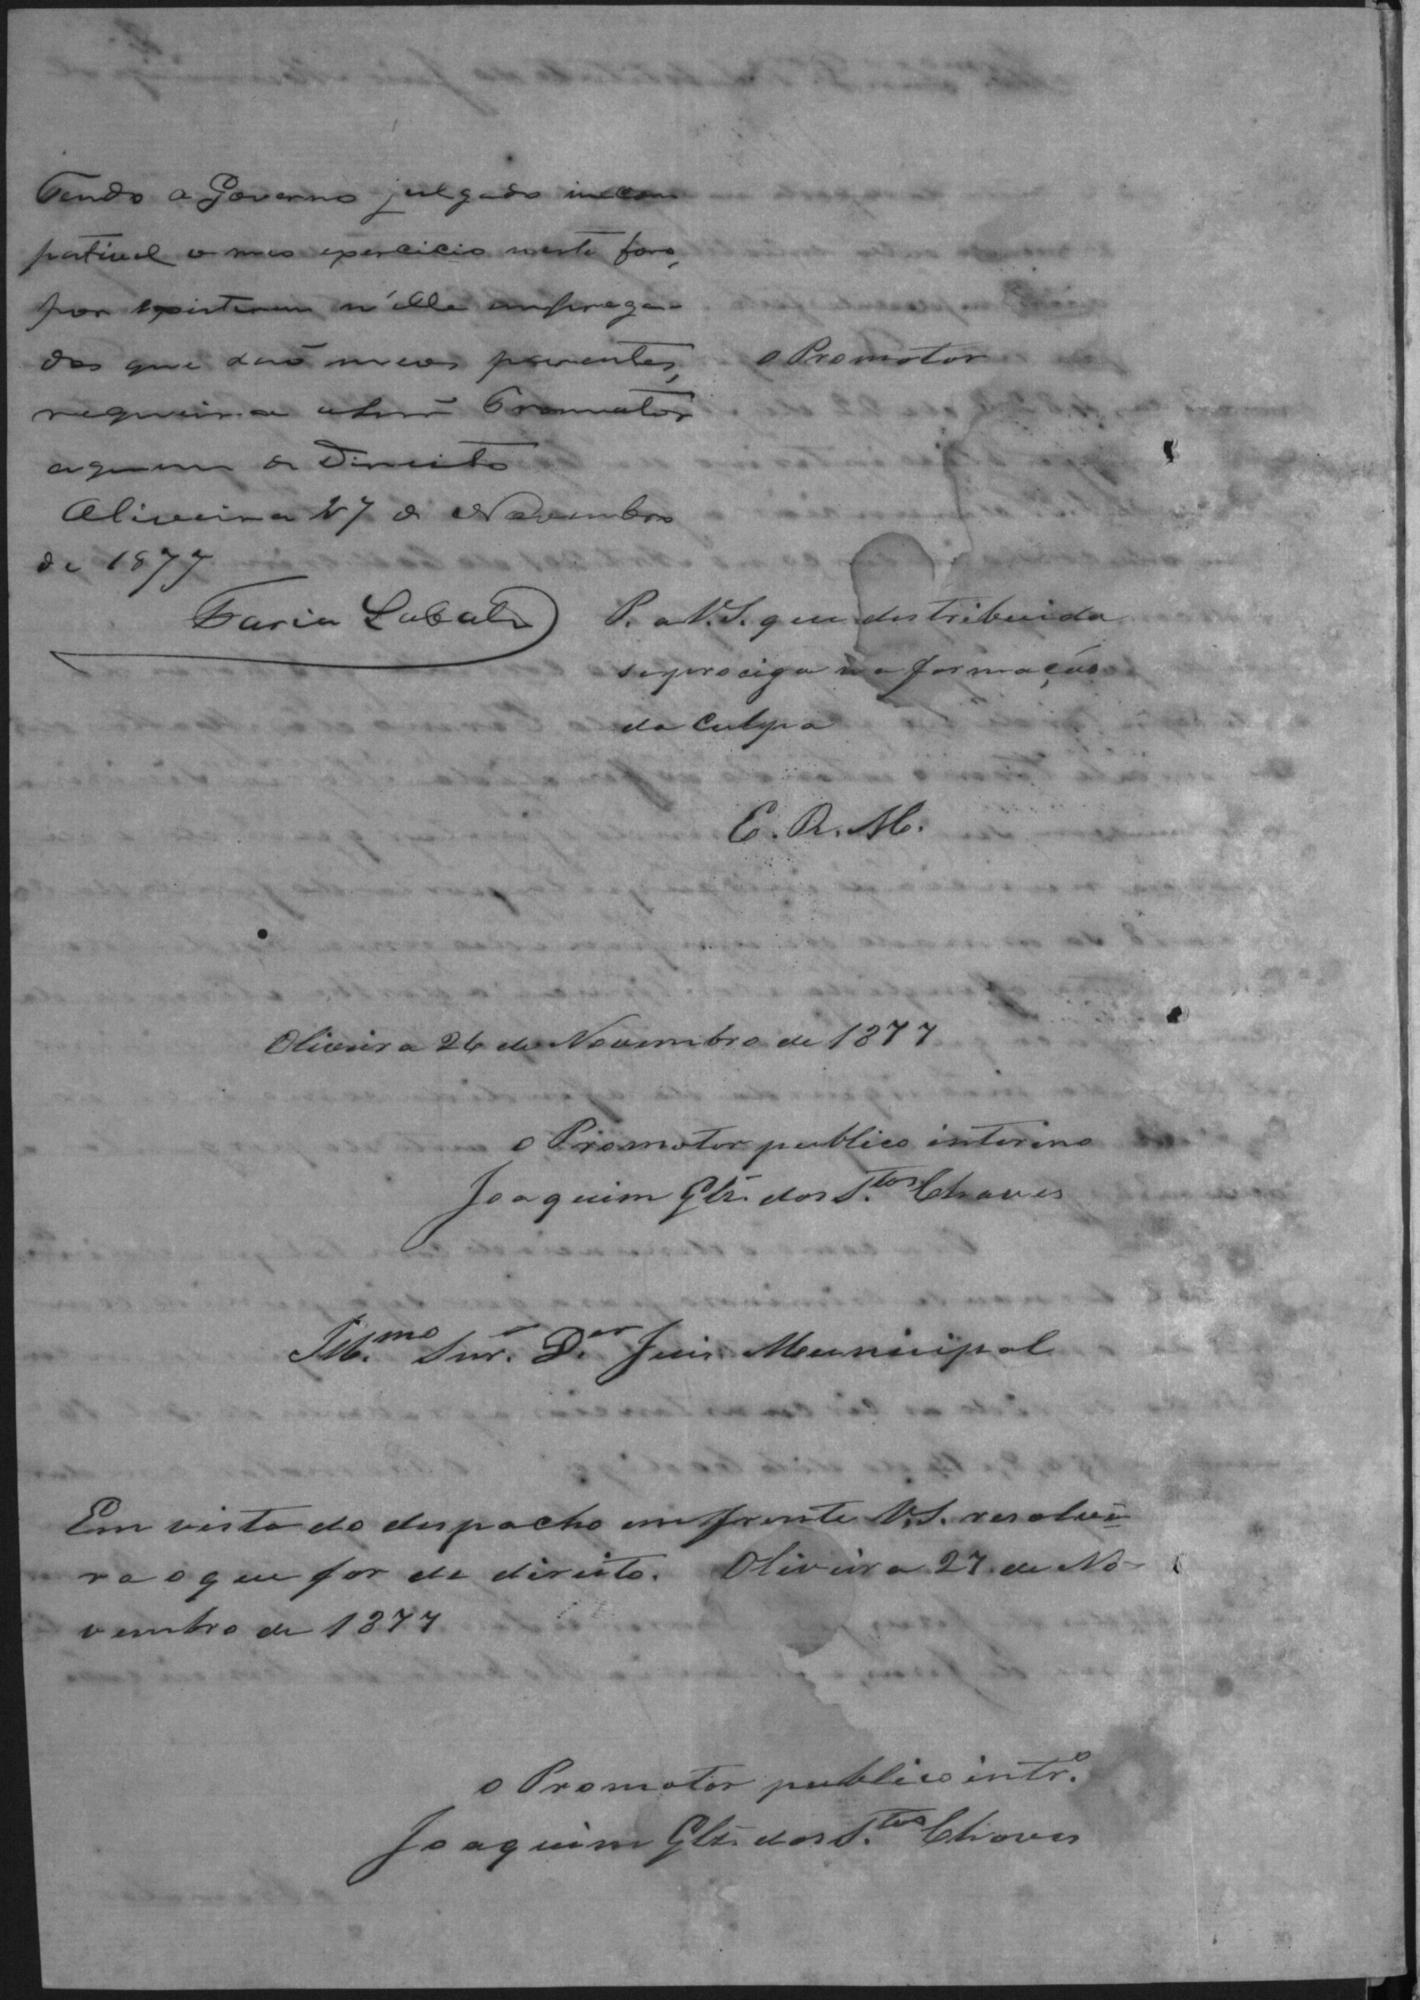 Tendo o Governo julgado incom
pativel o meo exercicio neste foro,
por existirem n'elle emprega-
dos que saõ meos parentes,
requeira o Snr Promotor
a quem de Direito
Oliveira 27 de Novembro
de 1877
Faria Lobato
o Promotor
P. a V.S. que destribuida
se prociga na formação
da Culpa
E. R. M.
Oliveira 26 de Novembro de 1877
o Promotor publico interino
Joaquim Glz. dos S.tos Chaves
Ill.mo Snr. D.or Juis Municipal
Em vista do despacho em frente V.S. resolve-
ra o que for de direito. Oliveira 27 de No-
vembro de 1877
o Promotor publico intr.o
Joaquim Glz. dos S.tos Chaves